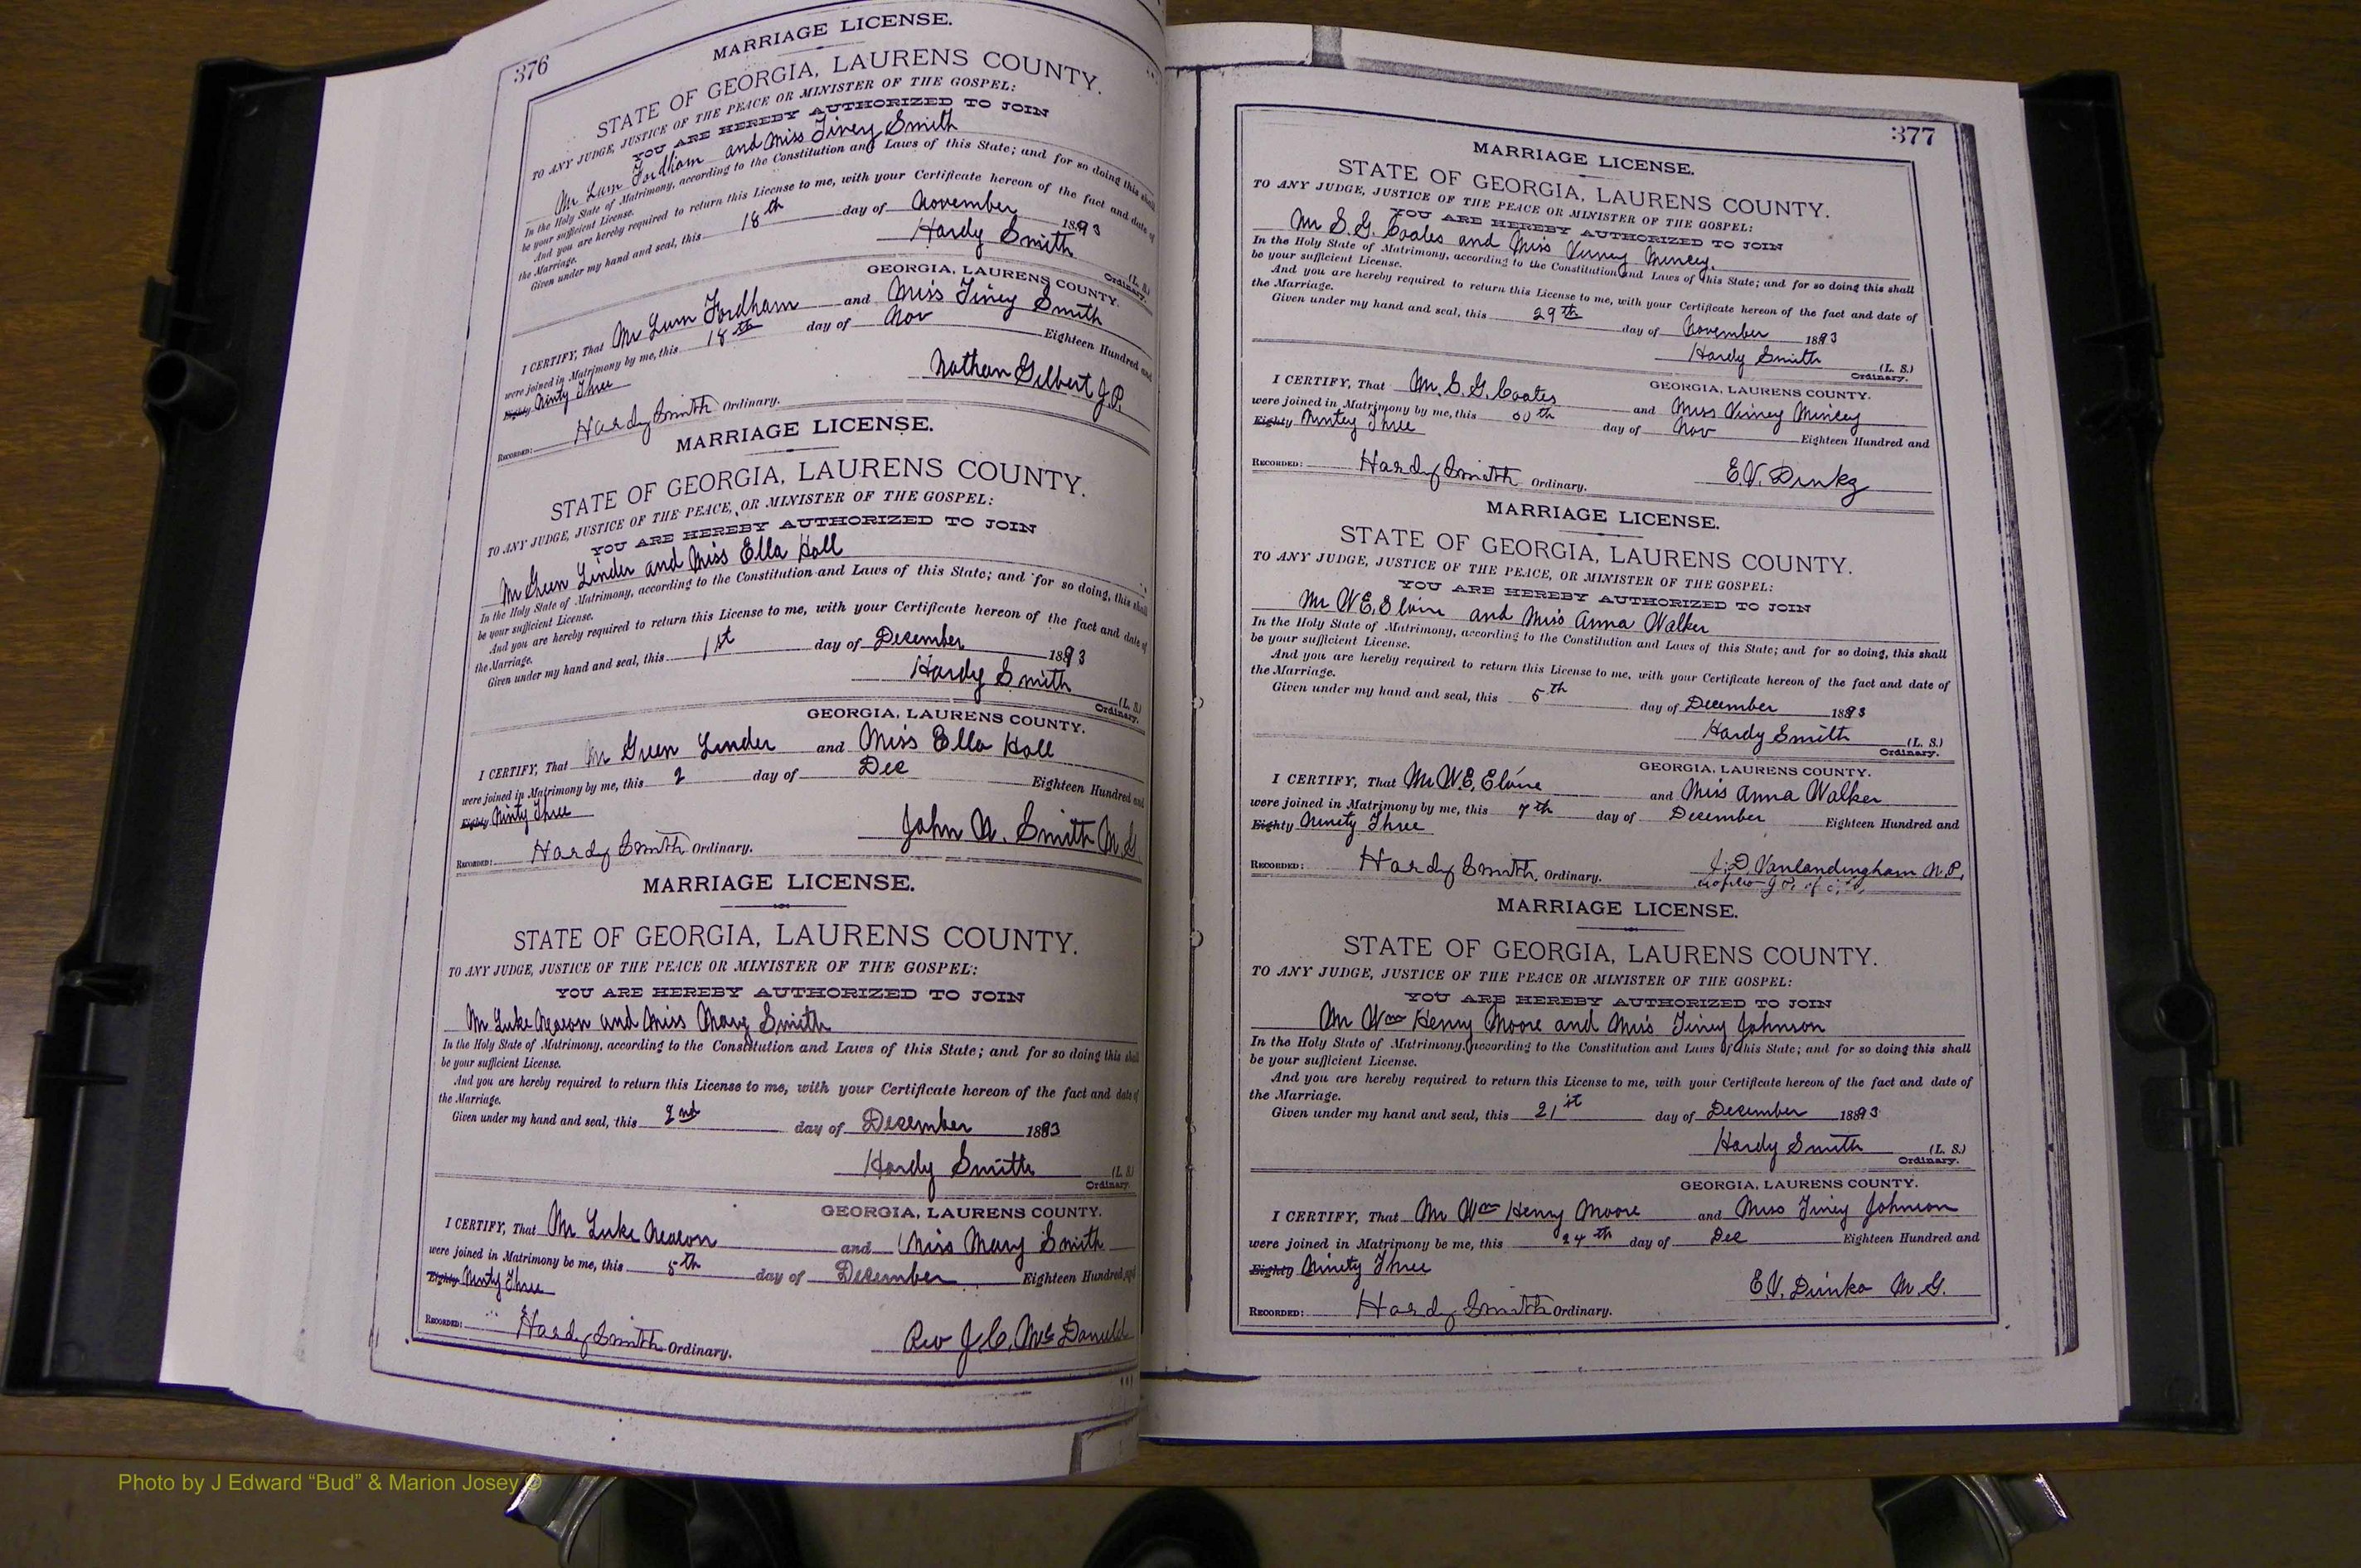 376
MARRIAGE LICENSE.
STATE OF GEORGIA, LAURENS COUNTY.
TO ANY JUDGE, JUSTICE OF THE PEACE OR MINISTER OF THE GOSPEL:
YOU ARE HEREBY AUTHORIZED TO JOIN
Mr Lum Fordham and Miss Tiney Smith
In the Holy State of Matrimony, according to the Constitution and Laws of this State; and for so doing this shall
be your sufficient License.
And you are hereby required to return this License to me, with your Certificate hereon of the fact and date of
the Marriage.
Given under my hand and seal, this 18th day of November 1893
Hardy Smith (L. S.)
Ordinary.
GEORGIA, LAURENS COUNTY.
I CERTIFY, That Mr Lum Fordham and Miss Tiney Smith
were joined in Matrimony by me, this 18th day of Nov Eighteen Hundred and
Eighty Ninty Three
Nathan Gilbert J.P.
RECORDED: Hardy Smith Ordinary.
MARRIAGE LICENSE.
STATE OF GEORGIA, LAURENS COUNTY.
TO ANY JUDGE, JUSTICE OF THE PEACE, OR MINISTER OF THE GOSPEL:
YOU ARE HEREBY AUTHORIZED TO JOIN
Mr Green Linder and Miss Ella Hall
In the Holy State of Matrimony, according to the Constitution and Laws of this State; and for so doing, this shall
be your sufficient License.
And you are hereby required to return this License to me, with your Certificate hereon of the fact and date of
the Marriage.
Given under my hand and seal, this 1st day of December 1893
Hardy Smith (L. S.)
Ordinary.
GEORGIA, LAURENS COUNTY.
I CERTIFY, That Mr Green Linder and Miss Ella Hall
were joined in Matrimony by me, this 2 day of Dec Eighteen Hundred and
Eighty Ninty Three
John N. Smith M G
RECORDED: Hardy Smith Ordinary.
MARRIAGE LICENSE.
STATE OF GEORGIA, LAURENS COUNTY.
TO ANY JUDGE, JUSTICE OF THE PEACE OR MINISTER OF THE GOSPEL:
YOU ARE HEREBY AUTHORIZED TO JOIN
Mr Luke and Miss Mary Smith
In the Holy State of Matrimony, according to the Constitution and Laws of this State; and for so doing this shall
be your sufficient License.
And you are hereby required to return this License to me, with your Certificate hereon of the fact and date of
the Marriage.
Given under my hand and seal, this 2nd day of December 1893
Hardy Smith (L. S.)
Ordinary.
GEORGIA, LAURENS COUNTY.
I CERTIFY, That Mr Luke and Miss Mary Smith
were joined in Matrimony be me, this 5th day of December Eighteen Hundred and
Eighty Ninty Three
RECORDED: Hardy Smith Ordinary. Rev J.C. McDaniel
377
MARRIAGE LICENSE.
STATE OF GEORGIA, LAURENS COUNTY.
TO ANY JUDGE, JUSTICE OF THE PEACE OR MINISTER OF THE GOSPEL:
YOU ARE HEREBY AUTHORIZED TO JOIN
Mr S.G. Coates and Miss Viney Mincey.
In the Holy State of Matrimony, according to the Constitution and Laws of this State; and for so doing this shall
be your sufficient License.
And you are hereby required to return this License to me, with your Certificate hereon of the fact and date of
the Marriage.
Given under my hand and seal, this 29th day of November 1893
Hardy Smith (L. S.)
Ordinary.
GEORGIA, LAURENS COUNTY.
I CERTIFY, That Mr. S.G. Coates and Miss Viney Mincey
were joined in Matrimony by me, this 30th day of Nov Eighteen Hundred and
Eighty Nintey Three
RECORDED: Hardy Smith Ordinary. E.V.
MARRIAGE LICENSE.
STATE OF GEORGIA, LAURENS COUNTY.
TO ANY JUDGE, JUSTICE OF THE PEACE, OR MINISTER OF THE GOSPEL:
YOU ARE HEREBY AUTHORIZED TO JOIN
Mr W.E. and Miss Anna Walker
In the Holy State of Matrimony, according to the Constitution and Laws of this State; and for so doing, this shall
be your sufficient License.
And you are hereby required to return this License to me, with your Certificate hereon of the fact and date of
the Marriage.
Given under my hand and seal, this 5th day of December 1893
Hardy Smith (L. S.)
Ordinary.
GEORGIA, LAURENS COUNTY.
I CERTIFY, That Mr W.E. and Miss Anna Walker
were joined in Matrimony by me, this 7th day of December Eighteen Hundred and
Eighty Ninety Three
RECORDED: Hardy Smith. Ordinary. J.D. Vanlandingham N.P.
MARRIAGE LICENSE.
STATE OF GEORGIA, LAURENS COUNTY.
TO ANY JUDGE, JUSTICE OF THE PEACE OR MINISTER OF THE GOSPEL:
YOU ARE HEREBY AUTHORIZED TO JOIN
Mr Wm Henry Moore and Miss Tiney Johnson
In the Holy State of Matrimony, according to the Constitution and Laws of this State; and for so doing this shall
be your sufficient License.
And you are hereby required to return this License to me, with your Certificate hereon of the fact and date of
the Marriage.
Given under my hand and seal, this 21st day of December 1893
Hardy Smith (L. S.)
Ordinary.
GEORGIA, LAURENS COUNTY.
I CERTIFY, That Mr Wm Henry Moore and Miss Tiney Johnson
were joined in Matrimony be me, this 24th day of Dec Eighteen Hundred and
Eighty Ninety Three
E.V. M.G.
RECORDED: Hardy Smith Ordinary.
Photo by J Edward “Bud” & Marion Josey ©